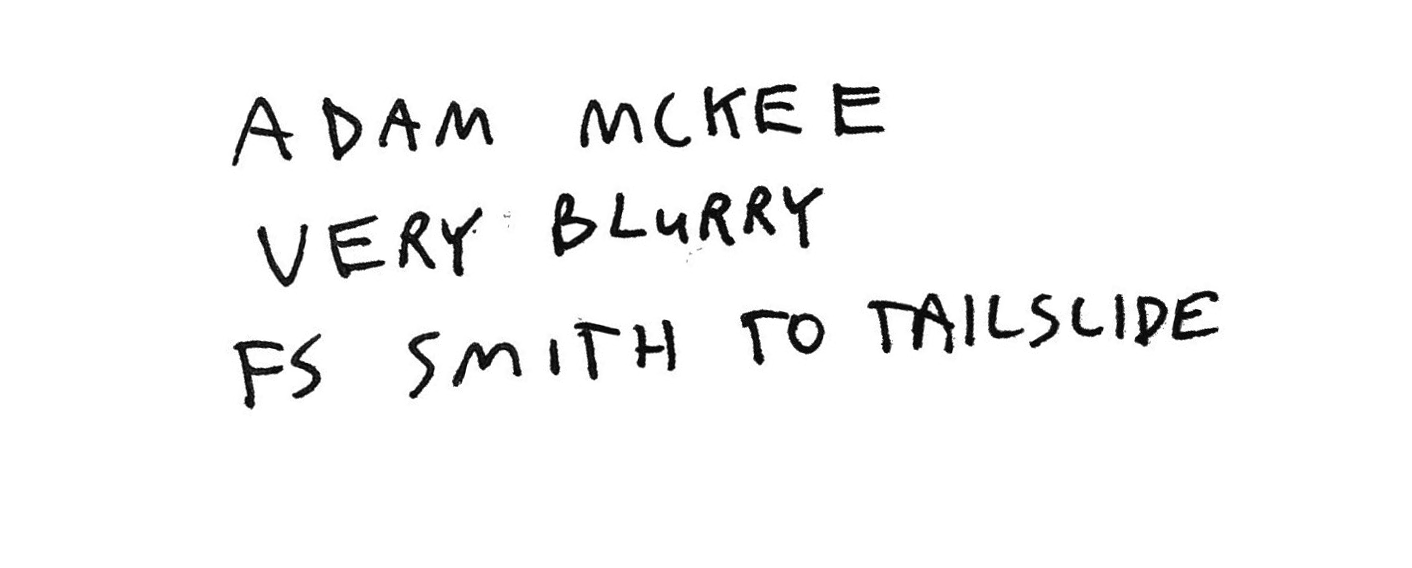 ADAM MCKEE
VERY BLURRY
FS SMITH TO TAILSLIDE